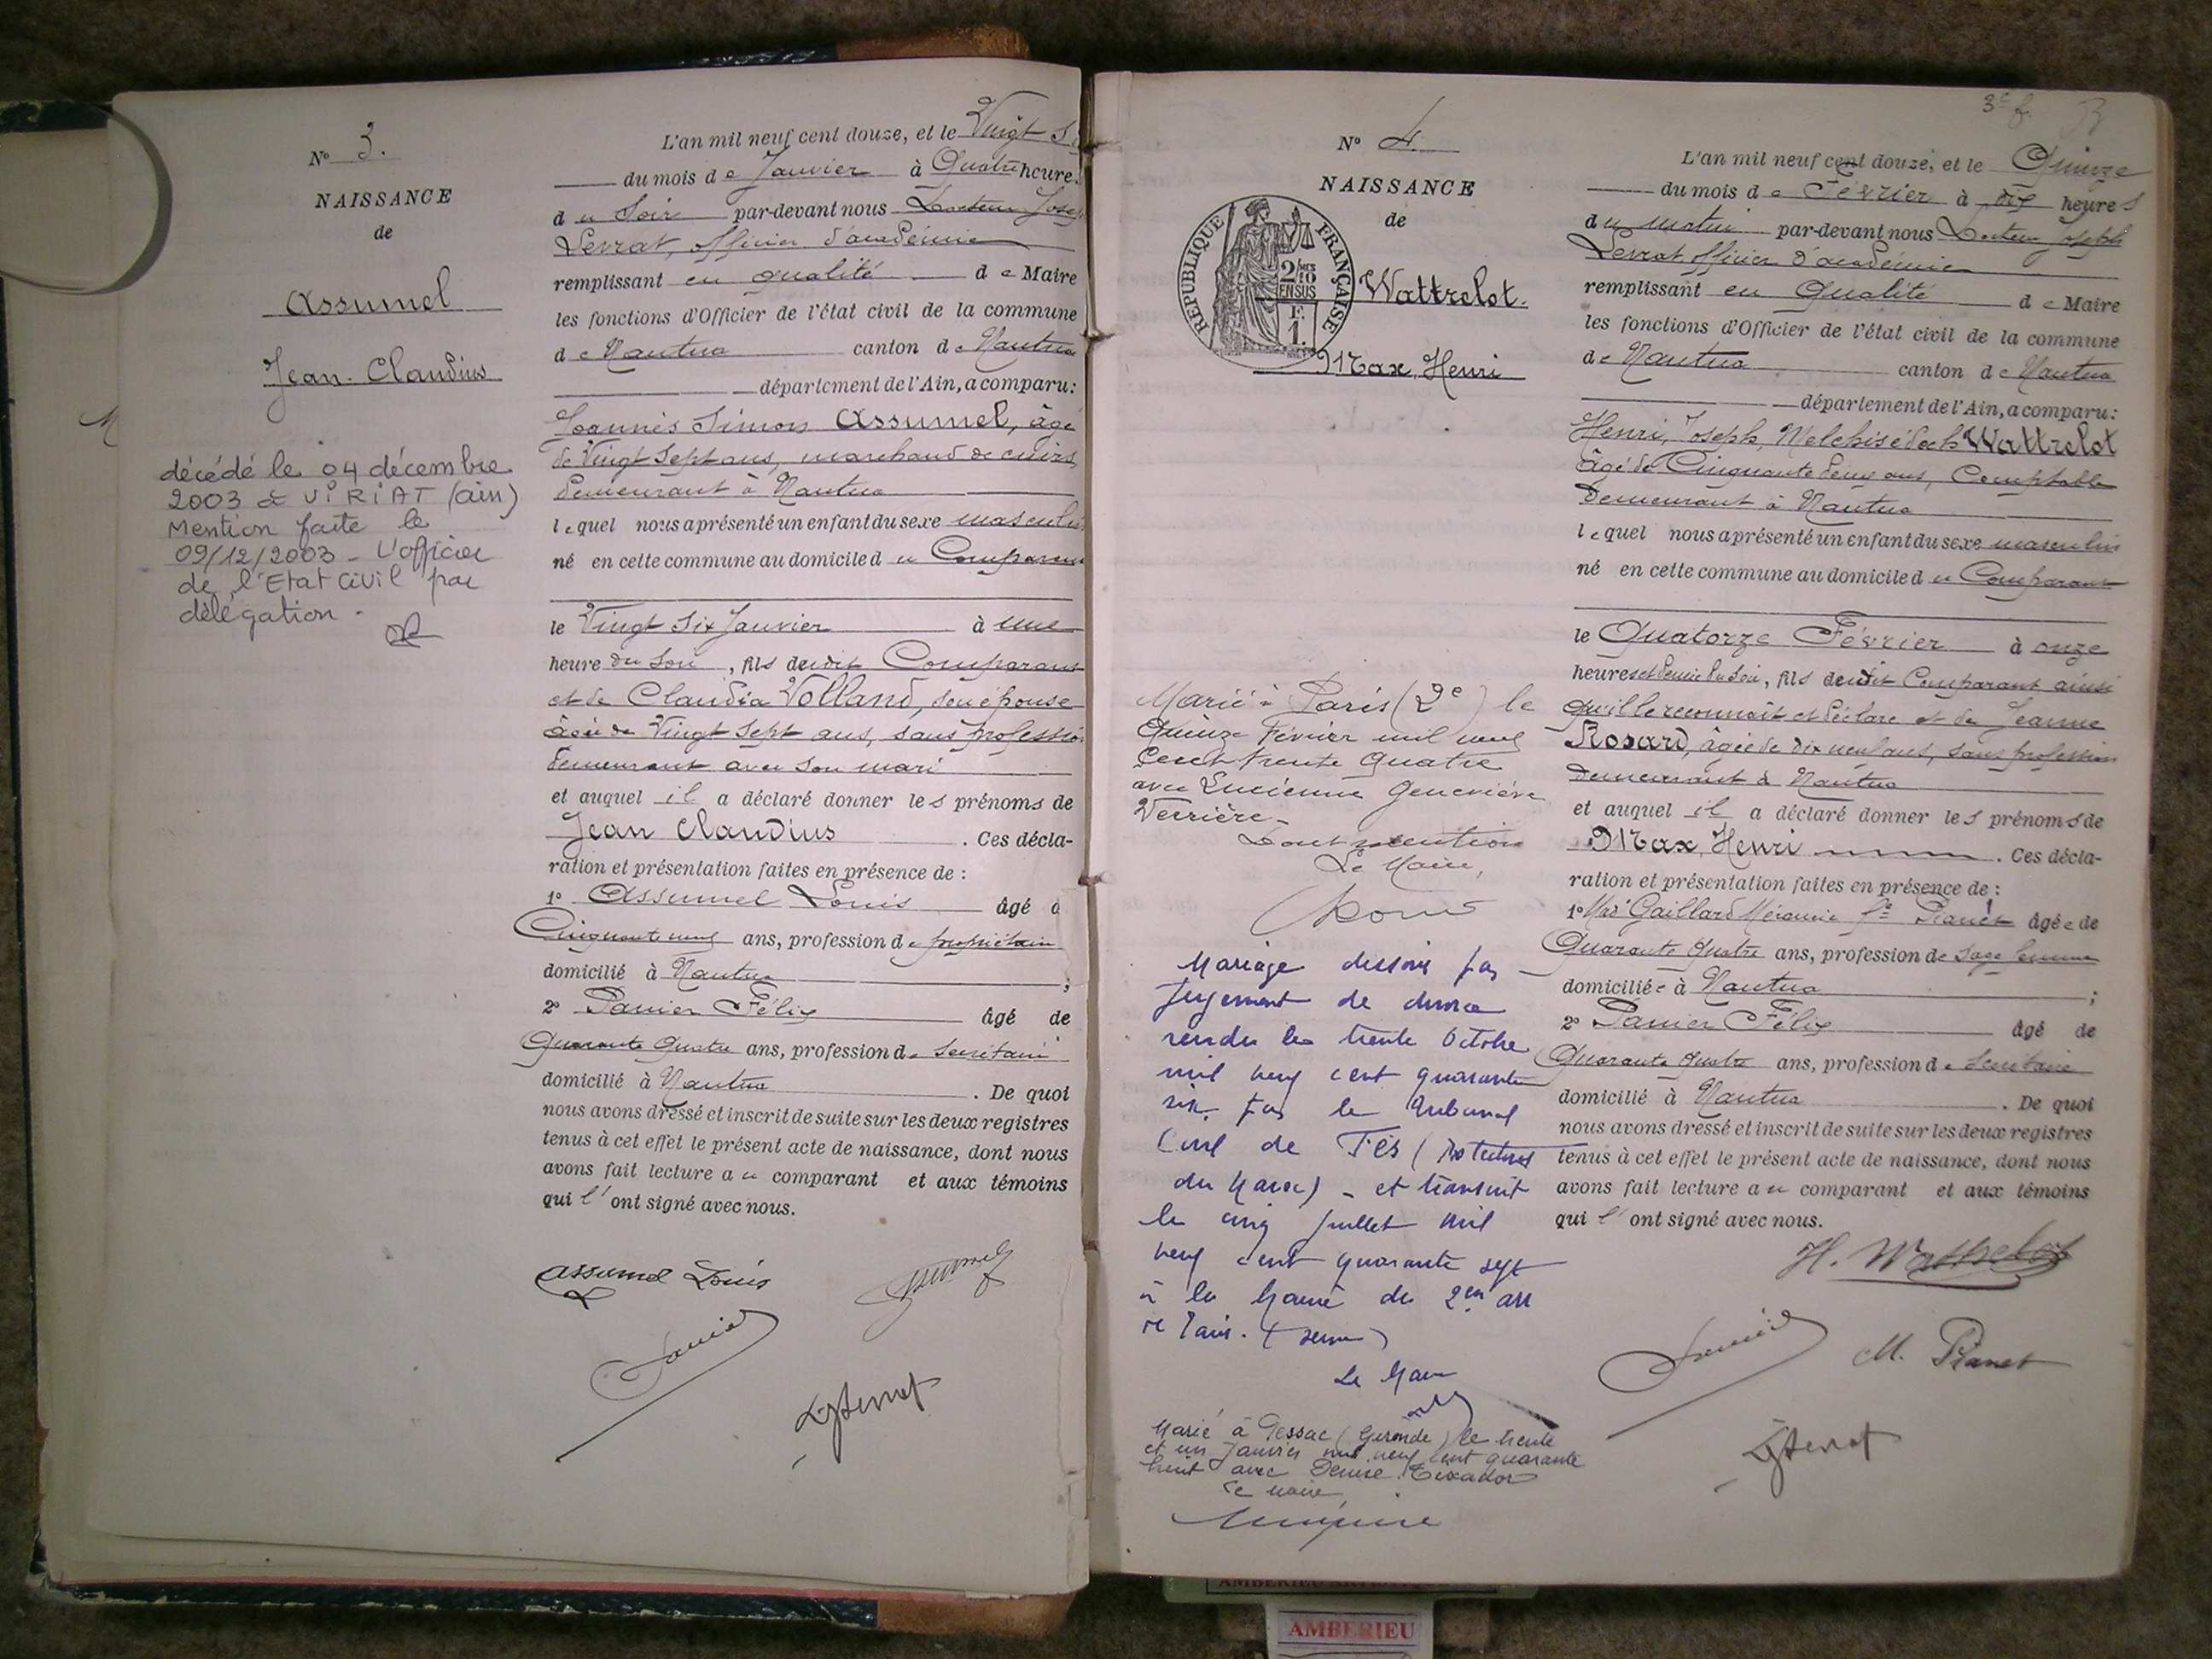 N° 3.
NAISSANCE
de
Assumel
Jean-Claudius
décédé le 04 décembre
2003 à VIRIAT (ain)
Mention faite le
09/12/2003 - L'officier
de l'Etat civil par
délégation.
L'an mil neuf cent douze, et le Vingt S
du mois de Janvier à Quatre heures
du Soir par-devant nous Docteur Josep
Levrat, officier d'académie
remplissant en qualité de Maire
les fonctions d'Officier de l'état civil de la commune
de Nantua canton de Nantua
département de l'Ain, a comparu:
Joannès Simon Assumel, âgé
de Vingt Sept ans, marchand de cuirs,
demeurant à Nantua
lequel nous a présenté un enfant du sexe masculin
né en cette commune au domicile du Comparant
le Vingt Six Janvier à une
heure du Soir, fils dudit Comparant
et de Claudia Volland, son épouse
âgée de Vingt Sept ans, sans profession
demeurant avec son mari
et auquel il a déclaré donner les prénoms de
Jean Claudius. Ces décla-
ration et présentation faites en présence de :
1° Assumel Louis âgé d
Cinquante neuf ans, profession de propriétaire
domicilié à Nantua ;
2° Panier Félix âgé de
Quarante quatre ans, profession de Secrétaire
domicilié à Nantua. De quoi
nous avons dressé et inscrit de suite sur les deux registres
tenus à cet effet le présent acte de naissance, dont nous
avons fait lecture au comparant et aux témoins
qui l'ont signé avec nous.
Assumel Louis Assumel
Panier
Levrat
3e f.
N° 4.
NAISSANCE
de
RÉPUBLIQUE FRANÇAISE
2/10
EN SUS
F.
1.
Wattrelot.
Max, Henri
Marié à Paris (2e) le
Quinze Février mil neuf
Cent trente quatre
avec Lucienne Geneviève
Verrière.
Dont mention
Le Maire,
Mariage dissous par
jugement de divorce
rendu le trente Octobre
mil neuf cent quarante
six par le tribunal
Civil de Fès (Protectorat
du Maroc) - et transcrit
le cinq Juillet mil
neuf cent quarante sept
à la Mairie du 2em arr
de Paris. (Seine)
Le Maire
Marié à Pessac (Gironde) le trente
et un Janvier mil neuf cent quarante
huit avec Denise Texador
Le Maire,
L'an mil neuf cent douze, et le Quinze
du mois de Février à dix heures
du matin par-devant nous Docteur Joseph
Levrat officier d'académie
remplissant en Qualité de Maire
les fonctions d'Officier de l'état civil de la commune
de Nantua canton de Nantua
département de l'Ain, a comparu:
Henri, Joseph, Melchisédech Wattrelot
âgé de Cinquante deux ans, Comptable
demeurant à Nantua
lequel nous a présenté un enfant du sexe masculin
né en cette commune au domicile du Comparant
le Quatorze Février à onze
heures et demie du Soir, fils dudit Comparant ainsi
qu'il le reconnaît et déclare et de Jeanne
Rosard, âgée de dix neuf ans, sans profession
demeurant à Nantua
et auquel il a déclaré donner les prénoms de
Max, Henri. Ces décla-
ration et présentation faites en présence de :
1° Mad Gaillard fe Pianet âgée de
Quarante Quatre ans, profession de Sage femme
domiciliée à Nantua ;
2° Panier Félix âgé de
Quarante quatre ans, profession de Secrétaire
domicilié à Nantua. De quoi
nous avons dressé et inscrit de suite sur les deux registres
tenus à cet effet le présent acte de naissance, dont nous
avons fait lecture au comparant et aux témoins
qui l'ont signé avec nous.
H. Wattrelot
Panier M. Pianet
Levrat
AMBERIEU
AMBERIEU